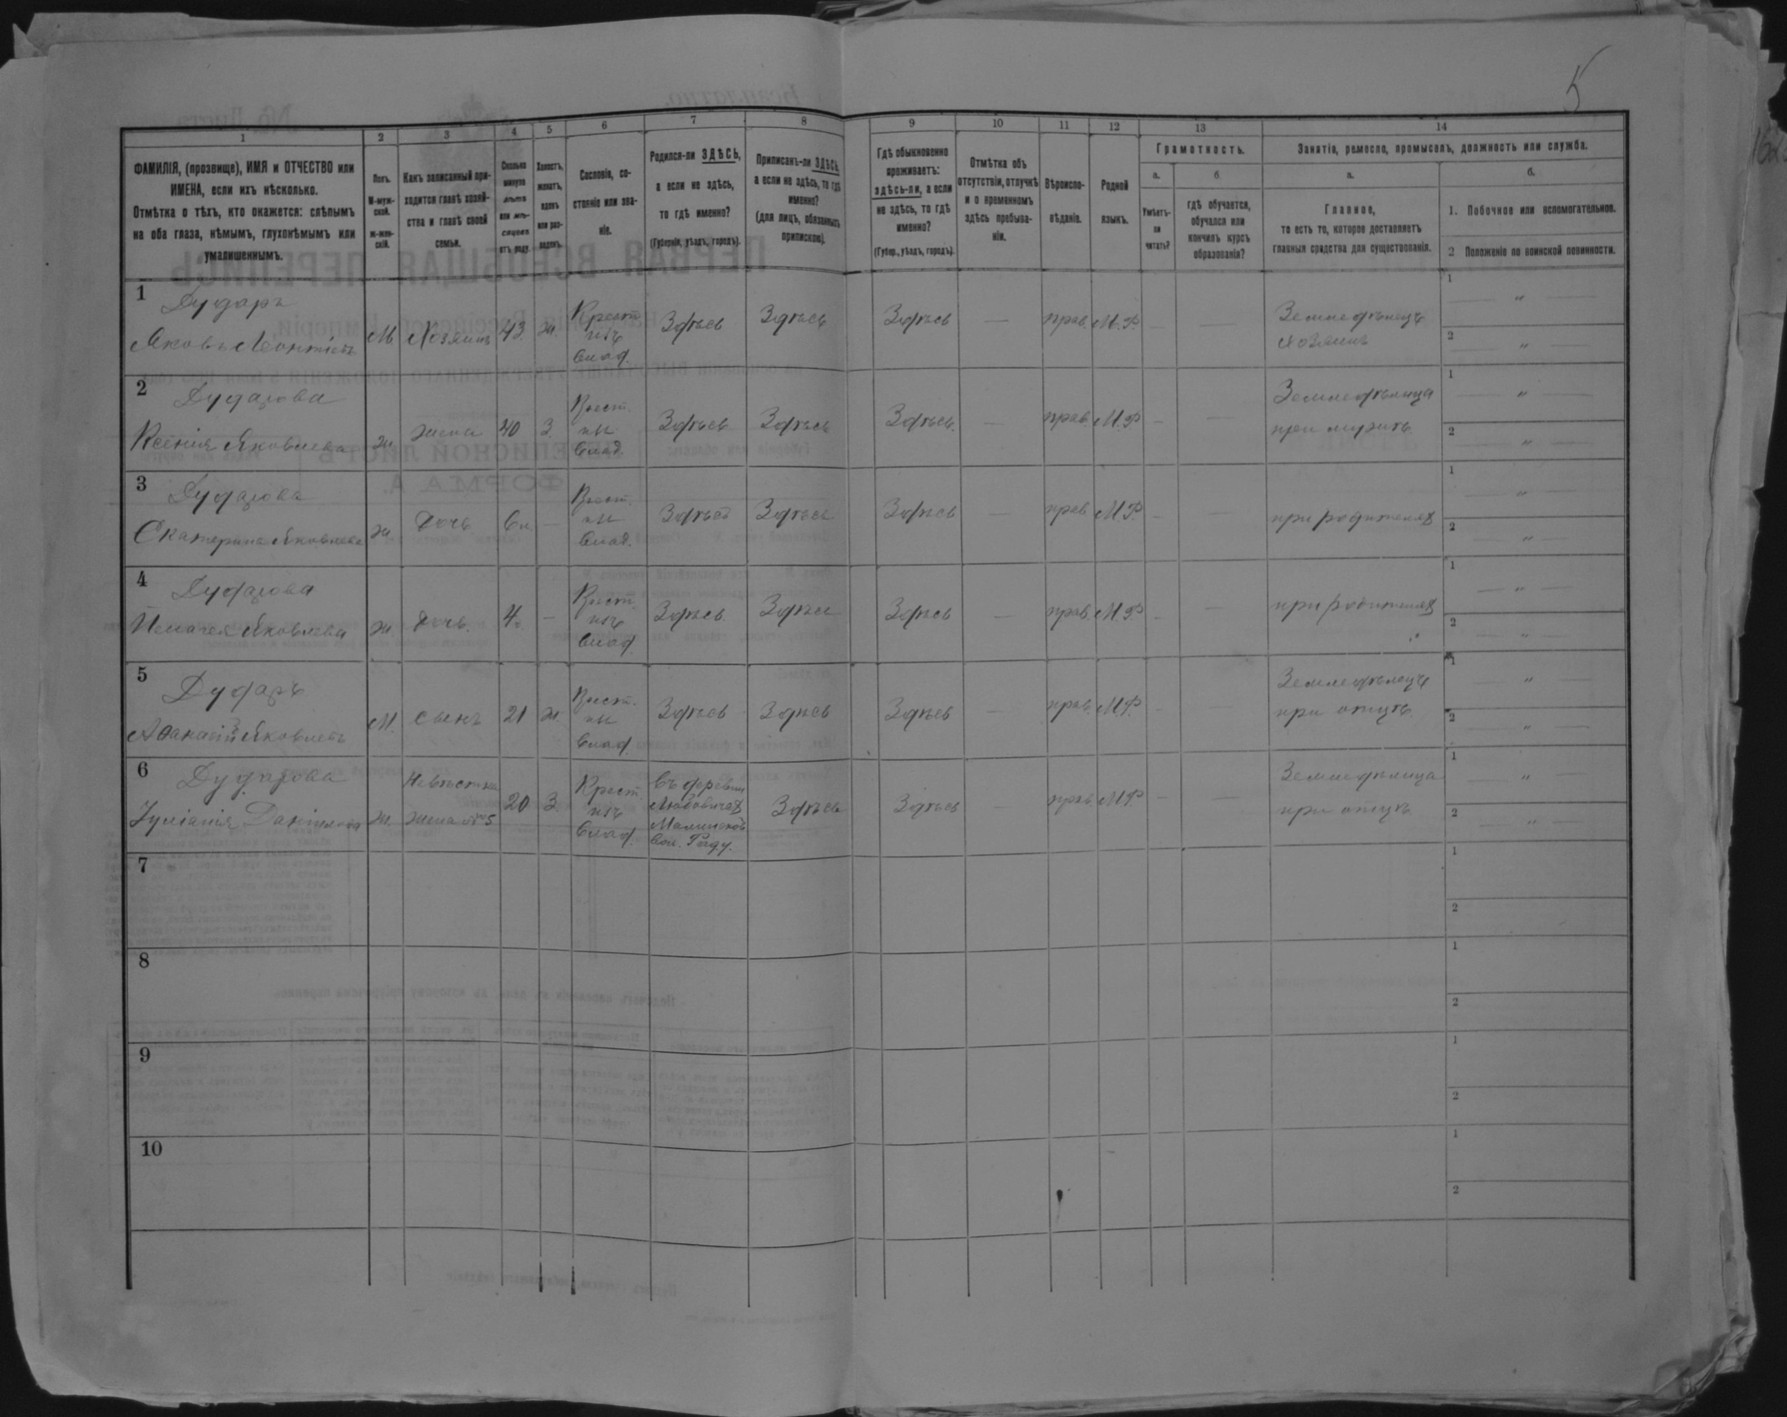 5
1
2
3
4
5
6
7
8
9
10
11
12
13
14
ФАМИЛІЯ, (прозвище), ИМЯ и ОТЧЕСТВО или
ИМЕНА, если ихъ нѣсколько.
Отмѣтка о тѣхъ, кто окажется: слѣпымъ
на оба глаза, нѣмымъ, глухонѣмымъ или
умалишеннымъ.
Полъ.
М-муж-
ской.
ж-жен-
скій.
Какъ записанный при-
ходится главѣ хозяй-
ства и главѣ своей
семьи.
Сколько
минуло
лѣтъ
или мѣ-
сяцевъ
отъ роду.
Холостъ,
женатъ,
вдовъ
или раз-
веденъ.
Сословіе, со-
стояніе или зва-
ніе.
Родился-ли ЗДѢСЬ,
а если не здѣсь,
то гдѣ именно?
(Губернія, уѣздъ, городъ).
Приписанъ-ли ЗДѢСЬ,
а если не здѣсь, то гдѣ
именно?
(для лицъ, обязанныхъ
припискою).
Гдѣ обыкновенно
проживаетъ:
здѣсь-ли, а если
не здѣсь, то гдѣ
именно?
(Губер., уѣздъ, городъ).
Отмѣтка объ
отсутствіи, отлучкѣ
и о временномъ
здѣсь пребыва-
ніи.
Вѣроиспо-
вѣданіе.
Родной
языкъ.
Грамотность.
а.
Умѣетъ-
ли
читать?
б.
гдѣ обучается,
обучался или
кончилъ курсъ
образованія?
Занятіе, ремесло, промыселъ, должность или служба.
а.
Главное,
то есть то, которое доставляетъ
главныя средства для существованія.
б.
1. Побочное или вспомогательное.
2 Положеніе по воинской повинности.
1 Дударъ
Яковъ Леонтіевъ
М Хозяинъ 43 ж. Крест. изъ влад. Здѣсь Здѣсь Здѣсь — прав. М.Р. — — Земледѣлецъ хозяинъ
1 — „ —
2 — „ —
2 Дударова
Ксенія Яковлева
ж. жена 40 З. Крест. изъ влад. Здѣсь Здѣсь Здѣсь. — прав. М.Р. — — Земледѣлица при мужѣ
1 — „ —
2 — „ —
3 Дударова
Екатерина Яковлева
ж. дочь 6 — Крест. изъ влад. Здѣсь Здѣсь Здѣсь — прав. М.Р. — — при родителях
1 — „ —
2 — „ —
4 Дударова
Пелагея Яковлева
ж. дочь. 4 — Крест. изъ влад. Здѣсь. Здѣсь Здѣсь — прав. М.Р. — — при родителях
1 — „ —
2 — „ —
5 Дударъ
Афанасій Яковлевъ
М. сынъ 21 ж. Крест. изъ влад. Здѣсь Здѣсь Здѣсь — прав. М.Р. — — Земледѣлецъ при отцѣ
1 — „ —
2 — „ —
6 Дударова
Іуліанія Даніилова
ж. невѣстка жена №5 20 З. Крест. изъ влад. Въ деревни Здѣсь Здѣсь — прав. М.Р. — — Земледѣлица при отцѣ
1 — „ —
2 — „ —
7
1
2
8
1
2
9
1
2
10
1
2